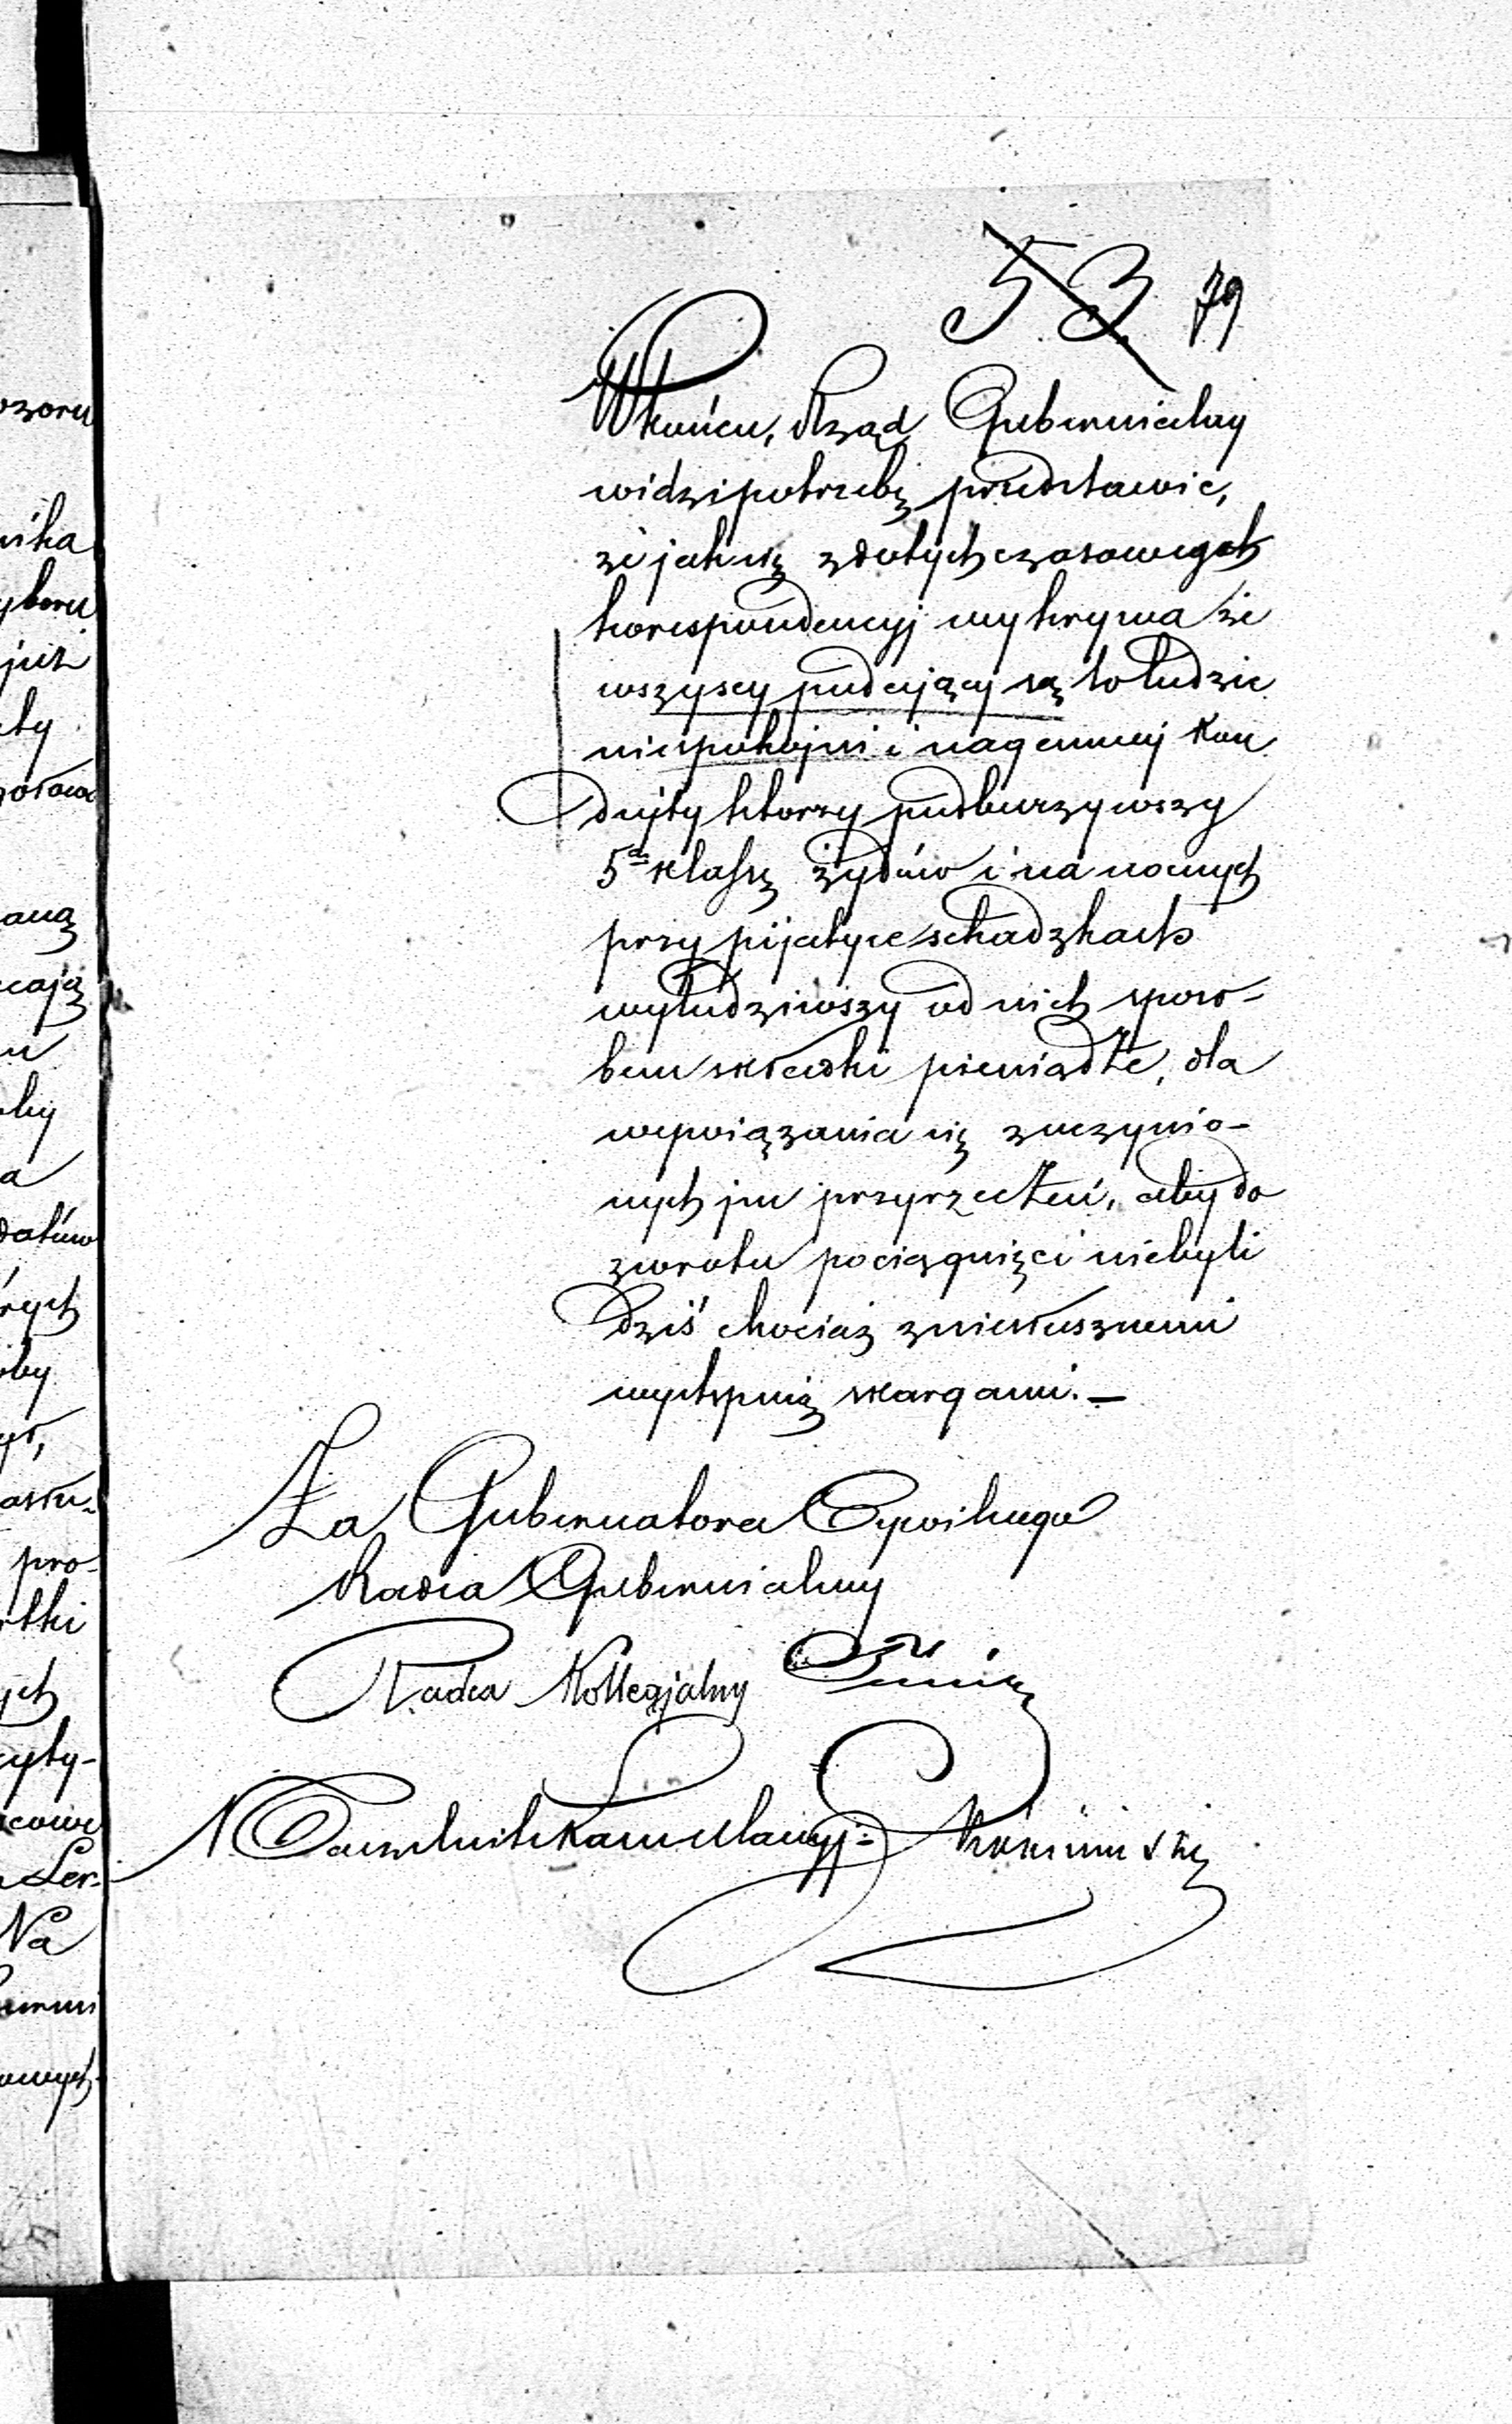 53 79
Wkońcu, Rząd Gubernialny
widzi potrzebę przedstawić,
że jak się z dotychczasowych
korespondencyj wykrywa że
wszyscy podający są to ludzie
niespokojni i nagannej kon
duity którzy podburzywszy
5ą klassę żydów i na nocnych
przy pijatyce schadzkach
wyłudziwszy od nich sposo-
bem składki pieniądze, dla
wywiązania się z uczynio-
nych im przyrzeczeń, aby do
zwrotu pociągnięci niebyli
dziś chociaż z niesłusznemi
występują skargami. —
Za Gubernatora Cywilnego
Radca Gubernialny
Radca Kollegjalny
Naczelnik Kancellaryj:
ozoru
nika
yboru
już
ty
aną
cają
u
a
datów
rych
oby
pro-
ych
Na